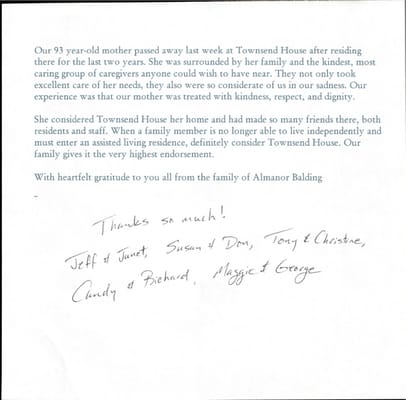 Our 93 year-old mother passed away last week at Townsend House after residing
there for the last two years. She was surrounded by her family and the kindest, most
caring group of caregivers anyone could wish to have near. They not only took
excellent care of her needs, they also were so considerate of us in our sadness. Our
experience was that our mother was treated with kindness, respect, and dignity.
She considered Townsend House her home and had made so many friends there, both
residents and staff. When a family member is no longer able to live independently and
must enter an assisted living residence, definitely consider Townsend House. Our
family gives it the very highest endorsement.
With heartfelt gratitude to you all from the family of Almanor Balding
-
Thanks so much!
Jeff & Janet, Susan & Don, Tony & Christine,
Candy & Richard, Maggie & George